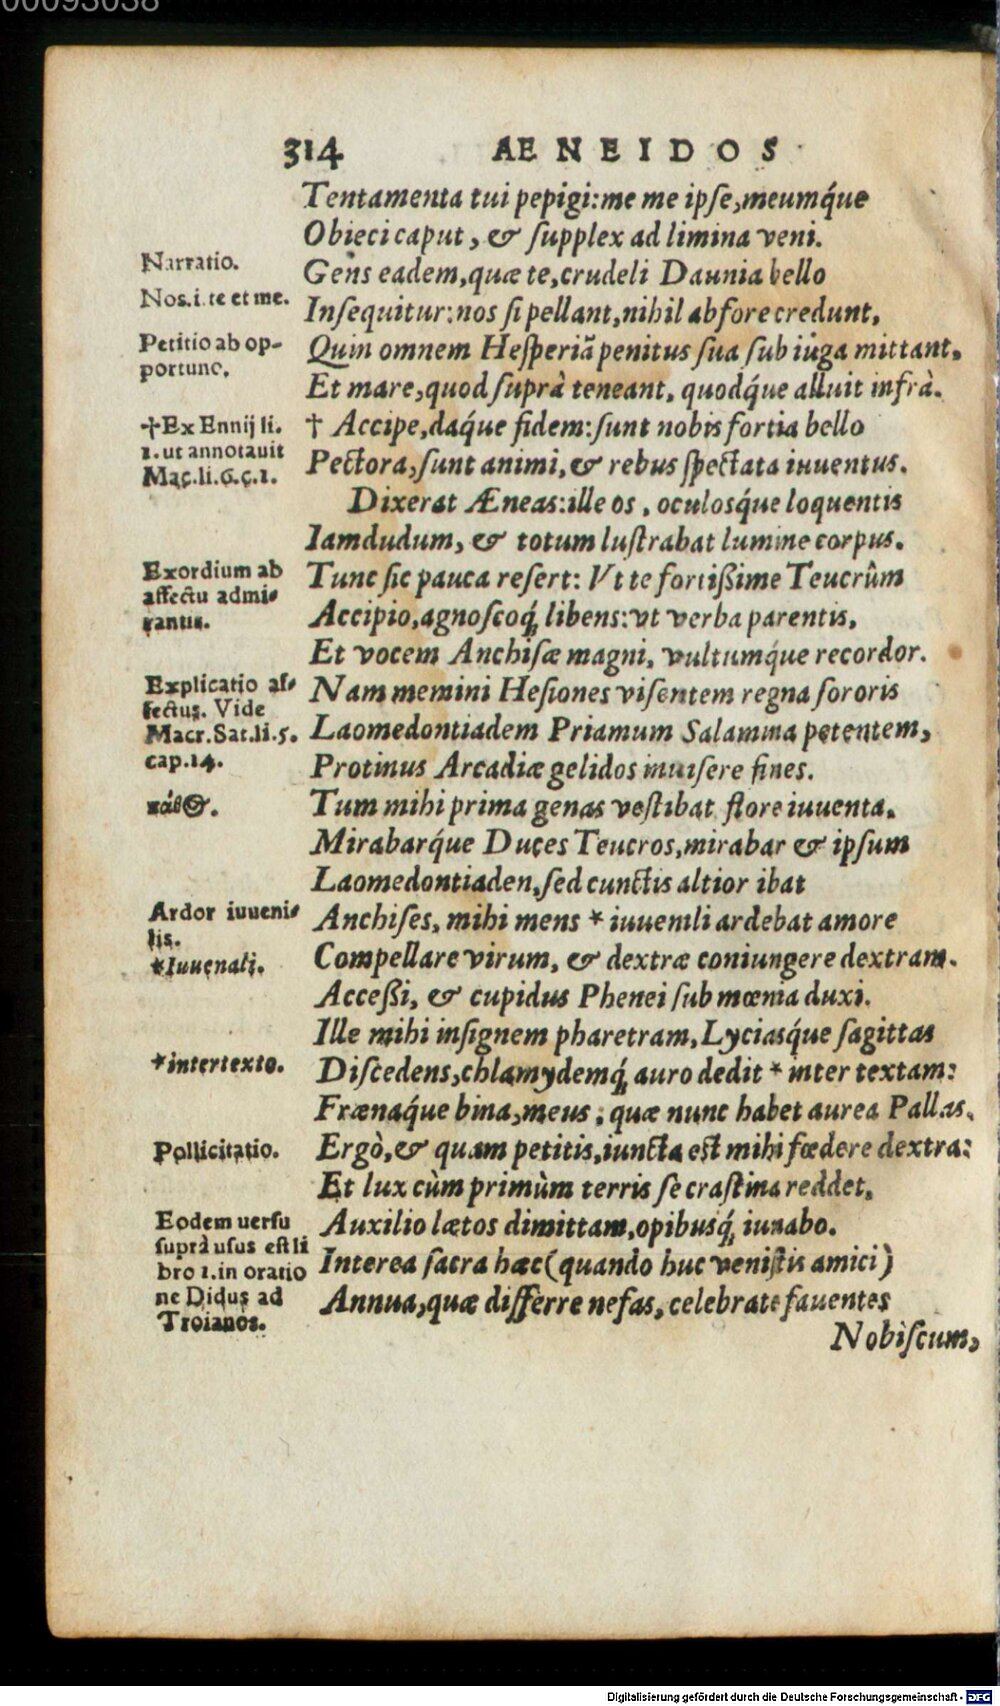 314 AENEIDOS
Tentamenta tui pepigi:me me ipſe,meumq́ue
Obieci caput, & ſupplex ad limina veni.
Narratio.
Gens eadem,quæ te,crudeli Daunia bello
Nos.i.te et me.
Inſequitur:nos ſi pellant,nihil abfore credunt,
Petitio ab op-
portuno.
Quin omnem Heſperiã penitus ſua ſub iuga mittant,
Et mare,quod ſuprà teneant, quodq́ue alluit infrà.
†Ex Ennij li.
1.ut annotauit
Mac.li.6.c.1.
† Accipe,daq́ue fidem:ſunt nobis fortia bello
Pectora,ſunt animi,& rebus ſpectata iuuentus.
Dixerat Æneas:ille os, oculosq́ue loquentis
Iamdudum, & totum luſtrabat lumine corpus.
Exordium ab
affectu admi-
rantis.
Tunc ſic pauca refert: Vt te fortißime Teucrûm
Accipio,agnoſcoq́; libens:vt verba parentis,
Et vocem Anchiſæ magni, vultumq́ue recordor.
Explicatio af-
fectus. Vide
Macr.Sat.li.5.
cap.14.
Nam memini Heſiones viſentem regna ſororis
Laomedontiadem Priamum Salamina petentem,
Protinus Arcadiæ gelidos inuiſere fines.
πάθος.
Tum mihi prima genas veſtibat flore iuuenta.
Mirabarq́ue Duces Teucros,mirabar & ipſum
Laomedontiaden,ſed cunctis altior ibat
Ardor iuueni-
lis.
Anchiſes, mihi mens * iuuenili ardebat amore
*Iuuenali.
Compellare virum, & dextræ coniungere dextram.
Acceßi, & cupidus Phenei ſub mœnia duxi.
Ille mihi inſignem pharetram,Lyciasq́ue ſagittas
*intertexto.
Diſcedens,chlamydemq́; auro dedit * inter textam:
Frænaq́ue bina,meus, quæ nunc habet aurea Pallas.
Pollicitatio.
Ergò,& quam petitis,iuncta eſt mihi fœdere dextra:
Et lux cùm primùm terris ſe craſtina reddet,
Eodem uerſu
ſuprà uſus eſt li
bro 1.in oratio
ne Didus ad
Troianos.
Auxilio lætos dimittam,opibusq́; iuuabo.
Interea ſacra hæc(quando huc veniſtis amici)
Annua,quæ differre nefas, celebrate fauentes
Nobiſcum,
Digitalisierung gefördert durch die Deutsche Forschungsgemeinschaft - DFG